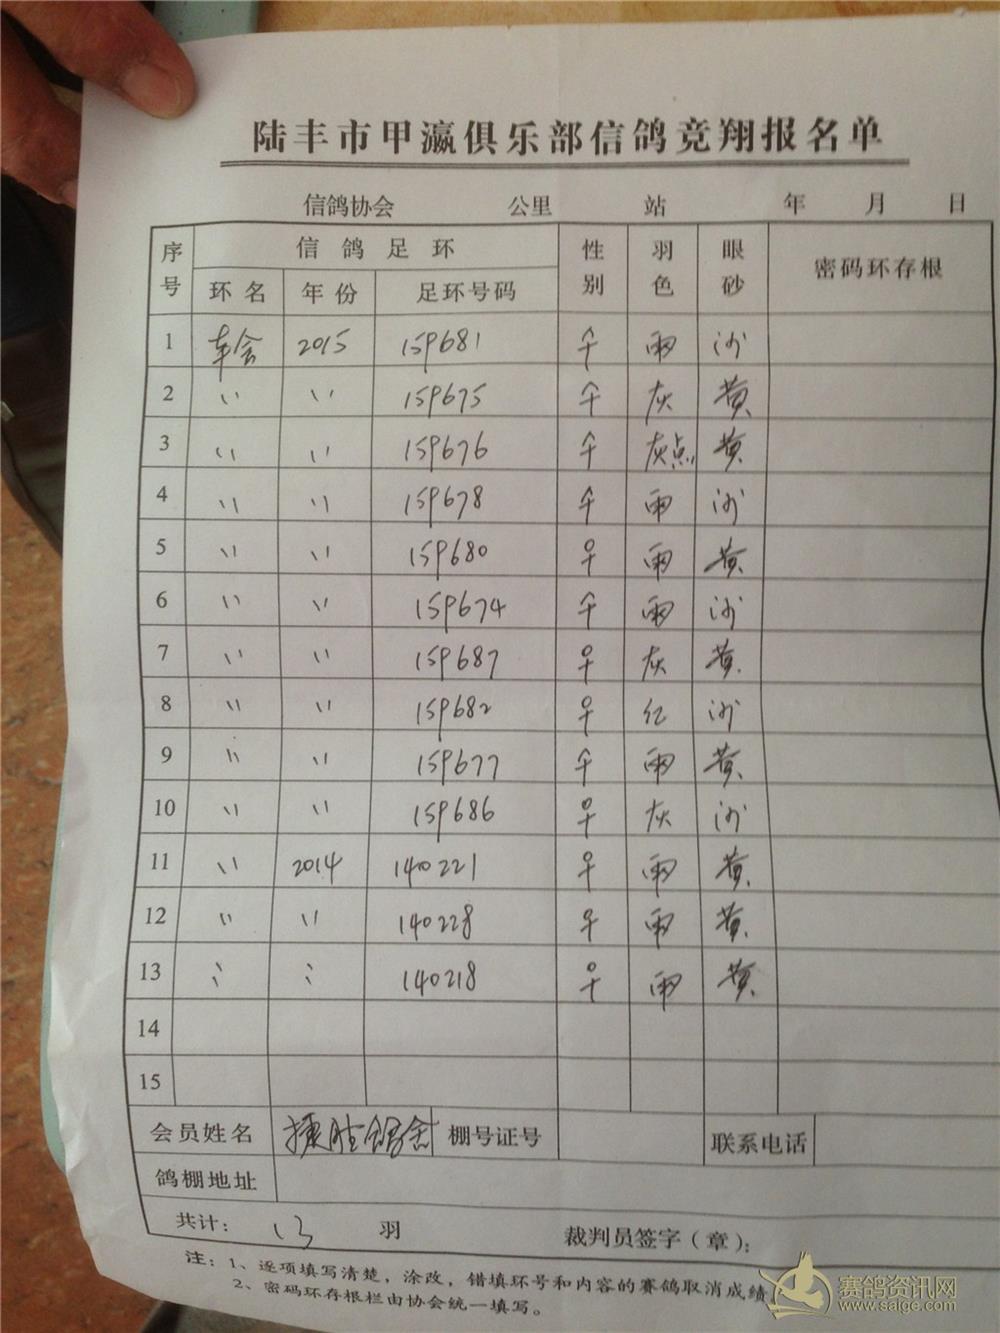 陆丰市甲瀛俱乐部信鸽竞翔报名单
信鸽协会 公里 站 年 月 日
序号 信鸽足环 性别 羽色 眼砂 密码环存根
环名 年份 足环号码
1 2015 159681 雨 沙
2 〃 〃 159675 灰 黄
3 〃 〃 159676 灰点 黄
4 〃 〃 159678 雨 沙
5 〃 〃 159680 ♀ 雨 黄
6 〃 〃 159674 雨 沙
7 〃 〃 159687 ♀ 灰 黄
8 〃 〃 159682 ♀ 红 沙
9 〃 〃 159677 雨 黄
10 〃 〃 159686 ♀ 灰 沙
11 〃 2014 140221 ♀ 雨 黄
12 〃 〃 140228 ♀ 雨 黄
13 〃 〃 140218 ♀ 雨 黄
14
15
会员姓名 捷胜鸽舍 棚号证号 联系电话
鸽棚地址
共计： 13 羽 裁判员签字（章）：
注：1、逐项填写清楚，涂改，错填环号和内容的赛鸽取消成绩
2、密码环存根栏由协会统一填写。
赛鸽资讯网
www.saige.com